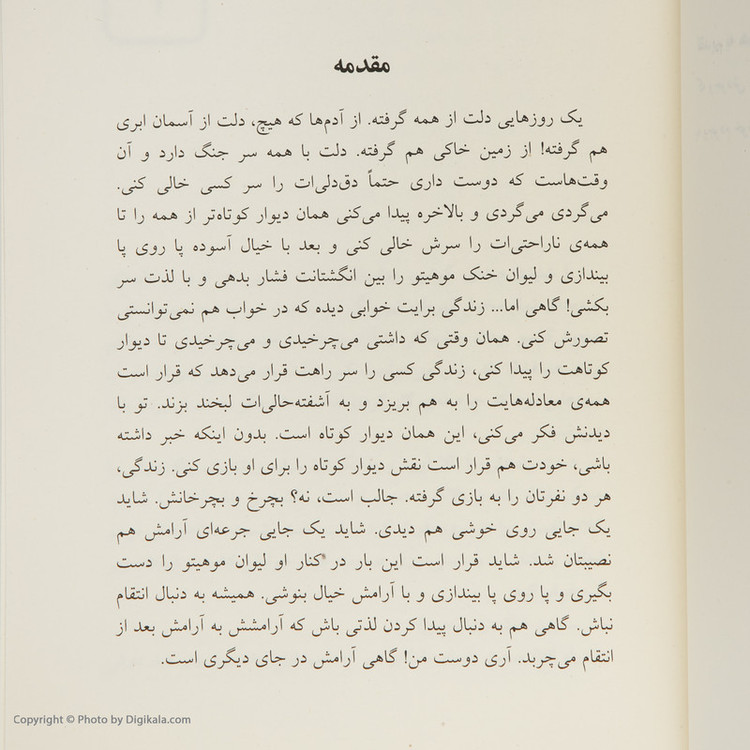 مقدمه
یک روزهایی دلت از همه گرفته. از آدم‌ها که هیچ، دلت از آسمان ابری
هم گرفته! از زمین خاکی هم گرفته. دلت با همه سر جنگ دارد و آن
وقت‌هاست که دوست داری حتماً دق‌دلی‌ات را سر کسی خالی کنی.
می‌گردی می‌گردی و بالاخره پیدا می‌کنی همان دیوار کوتاه‌تر از همه را تا
همه‌ی ناراحتی‌ات را سرش خالی کنی و بعد با خیال آسوده پا روی پا
بیندازی و لیوان خنک موهیتو را بین انگشتانت فشار بدهی و با لذت سر
بکشی! گاهی اما... زندگی برایت خوابی دیده که در خواب هم نمی‌توانستی
تصورش کنی. همان وقتی که داشتی می‌چرخیدی و می‌چرخیدی تا دیوار
کوتاهت را پیدا کنی، زندگی کسی را سر راهت قرار می‌دهد که قرار است
همه‌ی معادله‌هایت را به هم بریزد و به آشفته‌حالی‌ات لبخند بزند. تو با
دیدنش فکر می‌کنی، این همان دیوار کوتاه است. بدون اینکه خبر داشته
باشی، خودت هم قرار است نقش دیوار کوتاه را برای او بازی کنی. زندگی،
هر دو نفرتان را به بازی گرفته. جالب است، نه؟ بچرخ و بچرخانش. شاید
یک جایی روی خوشی هم دیدی. شاید یک جایی جرعه‌ای آرامش هم
نصیبتان شد. شاید قرار است این بار در کنار او لیوان موهیتو را دست
بگیری و پا روی پا بیندازی و با آرامش خیال بنوشی. همیشه به دنبال انتقام
نباش. گاهی هم به دنبال پیدا کردن لذتی باش که آرامشش به آرامش بعد از
انتقام می‌چربد. آری دوست من! گاهی آرامش در جای دیگری است.
Copyright © Photo by Digikala.com